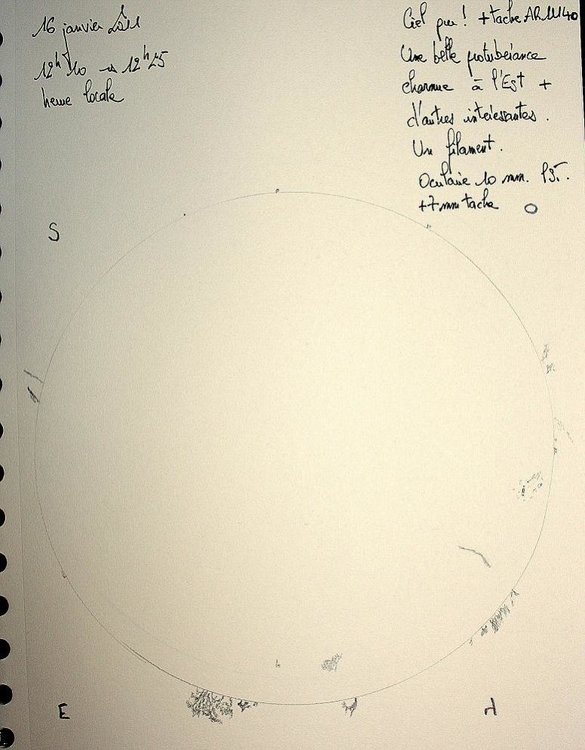 16 janvier 2011
12h10 → 12h25
heure locale
Ciel pur ! + tache AR 11140
Une belle protubérance
charnue à l'Est +
d'autres intéressantes.
Un filament.
Oculaire 10 mm. P3T.
+7mm tache
S
E